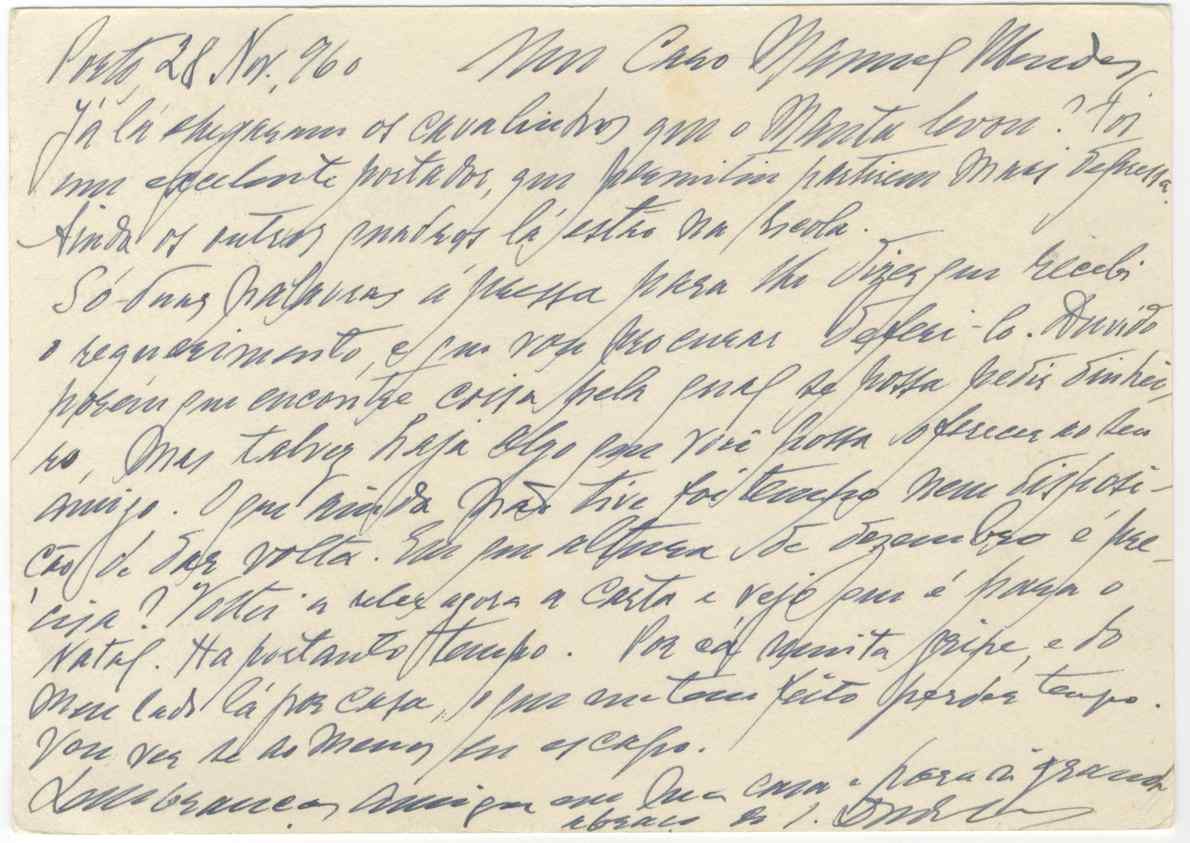 Porto, 28 Nov. 960 Meu Caro Manuel Mendes,
Já lá chegaram os cavalinhos que o Manta levou? Foi
um excelente portador, que permitiu partirem mais depressa.
Ainda os outros quadros lá estão na Escola.
Só duas palavras à pressa para lhe dizer que recebi
o requerimento, e que vou procurar deferi-lo. Duvido
porém que encontre coisa pela qual se possa pedir dinhei-
ro, mas talvez haja algo que você possa oferecer ao seu
amigo. O que ainda não tive foi tempo nem disposi-
ção de dar volta. Em que altura de dezembro é pre-
cisa? Voltei a reler agora a carta e vejo que é para o
Natal. Ha portanto tempo. Por cá muita gripe, e do
meu lado lá por casa, o que me tem feito perder tempo.
Vou ver se ao menos eu escapo.
Lembranças amigas em sua casa e para si grande
abraço do